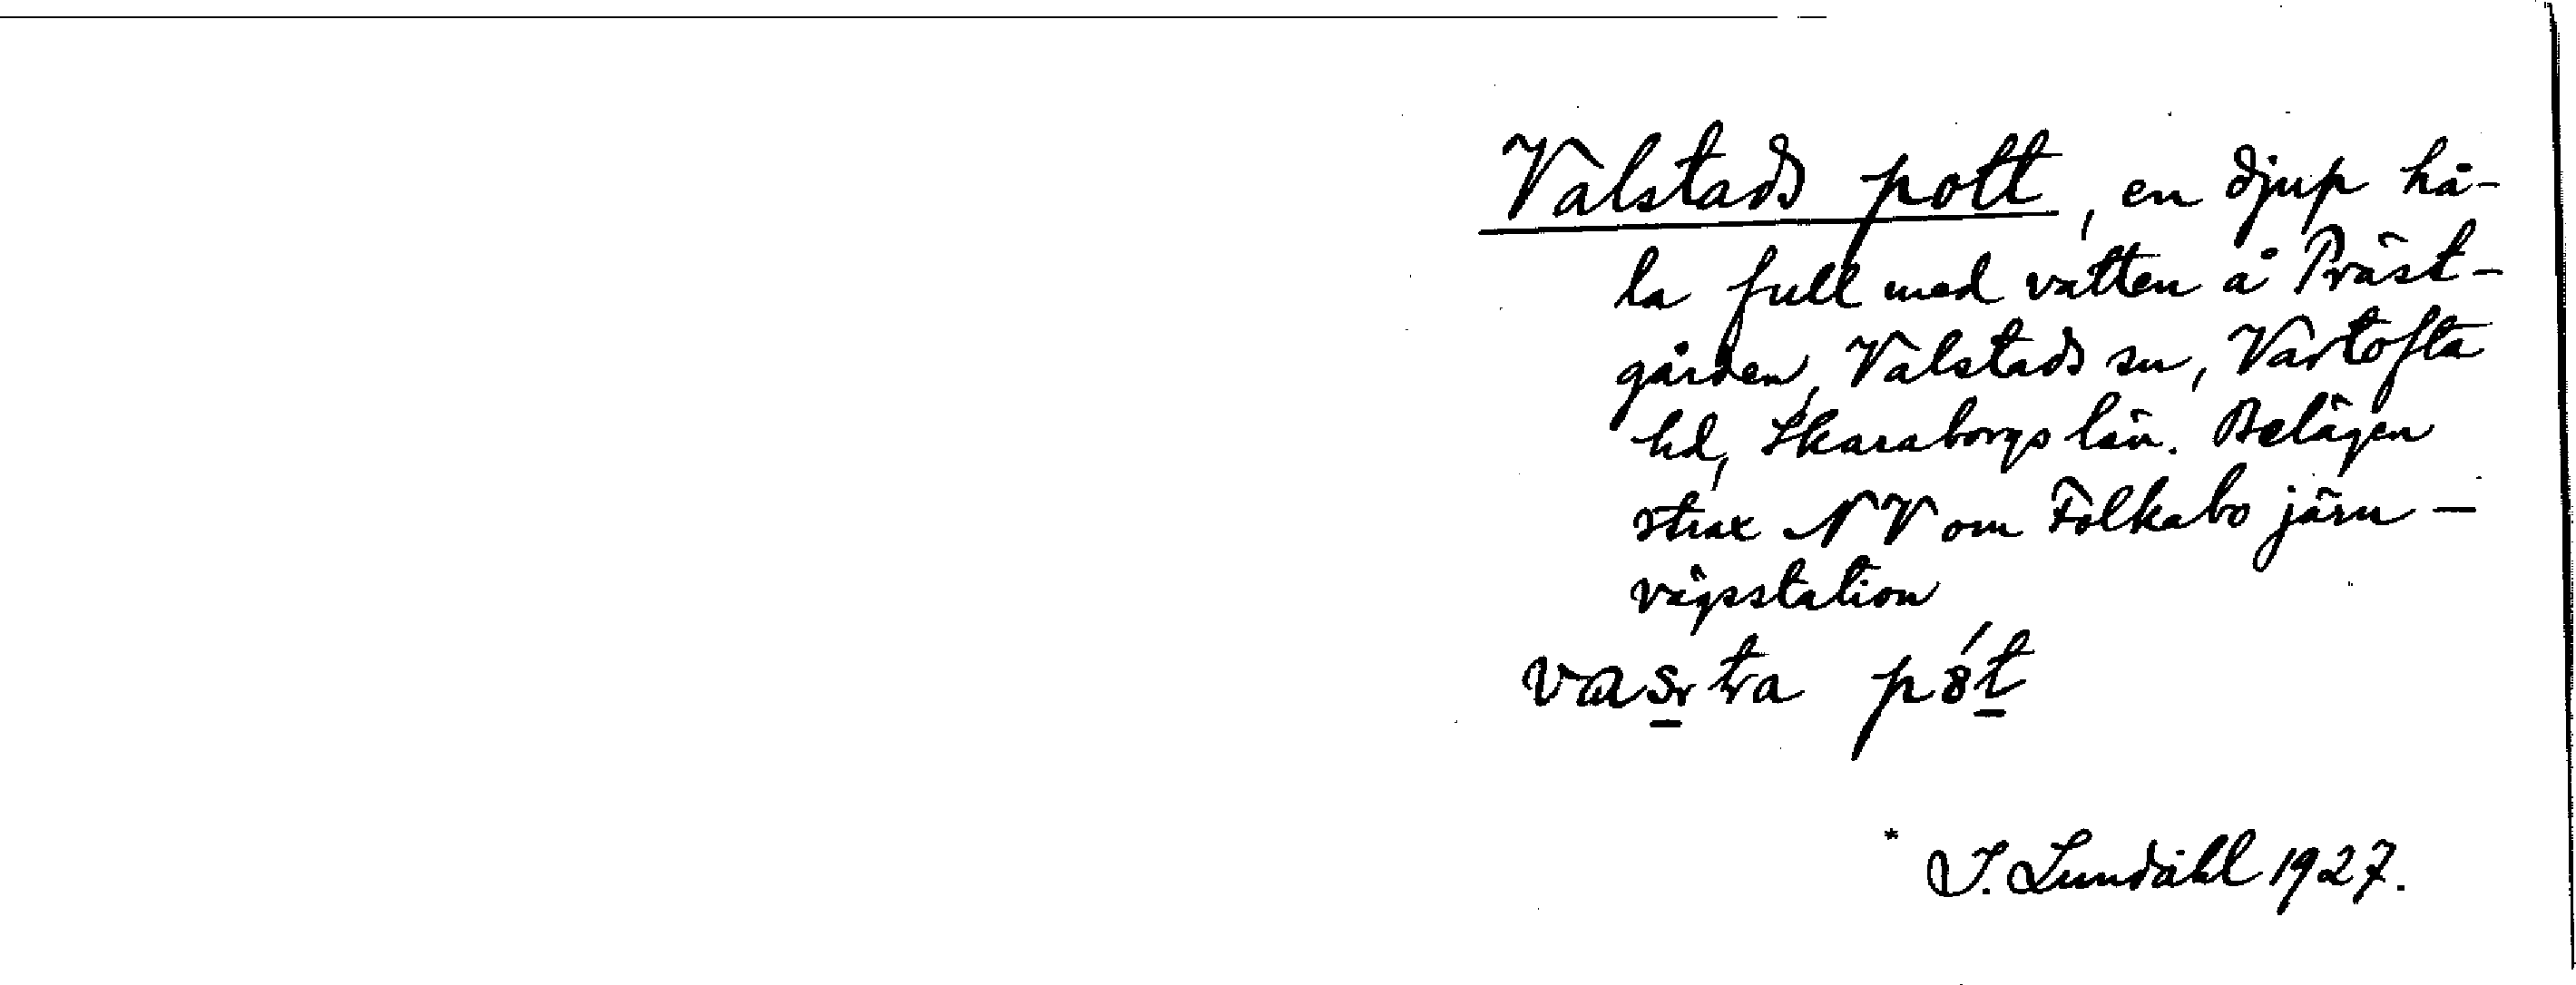 Valstads pott, en djup hå-
la full med vatten å Präst-
gården, Valstads sn, Vartofta
hd, Skaraborgs län. Belägen
strax NV om Folkabo järn-
vägsstation
I. Lundahl 1927.